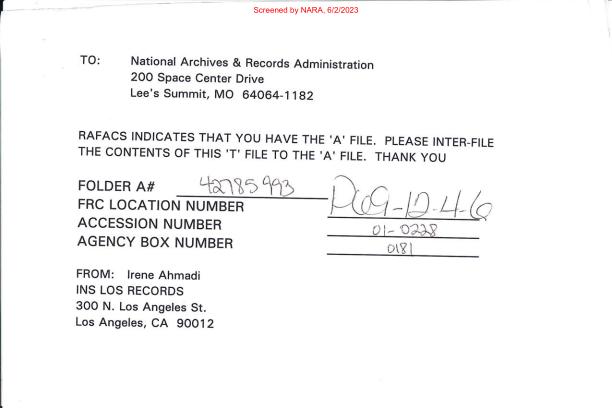 Screened by NARA, 6/2/2023
TO: National Archives & Records Administration
200 Space Center Drive
Lee's Summit, MO 64064-1182
RAFACS INDICATES THAT YOU HAVE THE 'A' FILE. PLEASE INTER-FILE
THE CONTENTS OF THIS 'T' FILE TO THE 'A' FILE. THANK YOU
FOLDER A# 42785993
FRC LOCATION NUMBER
ACCESSION NUMBER 01-0228
AGENCY BOX NUMBER 0181
FROM: Irene Ahmadi
INS LOS RECORDS
300 N. Los Angeles St.
Los Angeles, CA 90012